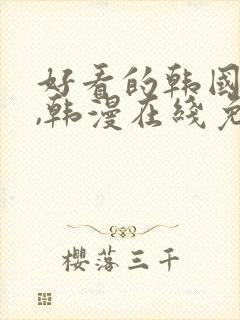 好看的韩国
,韩漫在线免
櫻落三千